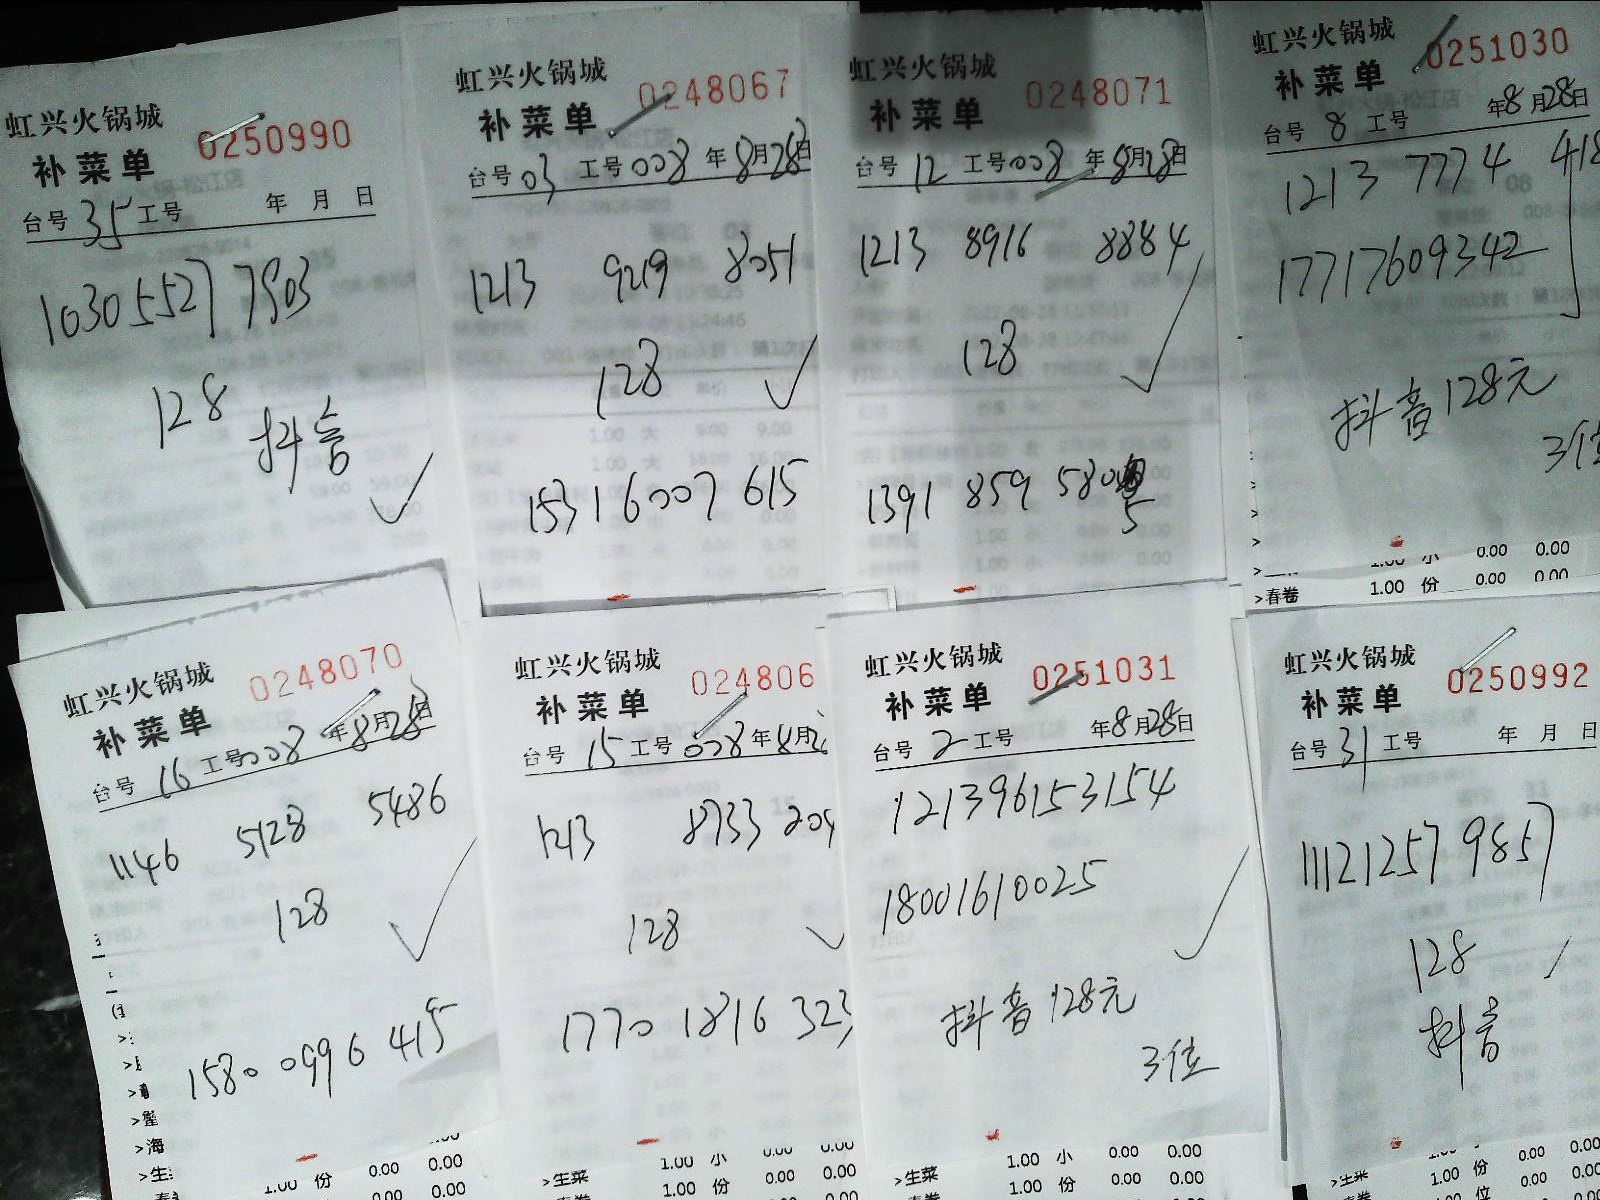 虹兴火锅城
补菜单 0250990
台号 35 工号 年 月 日
10305527 7903
128
抖音
虹兴火锅城
补菜单 0248067
台号 03 工号 008 年 8月 28日
1213 9219 8051
128
15316007615
虹兴火锅城
补菜单 0248071
台号 12 工号 008 年 8月 28日
1213 8916 8884
128
1391 859 580
5
虹兴火锅城
补菜单 0251030
台号 8 工号 年 8月 28日
1213 7774 418
17717609342
抖音 128元
3位
1.00 小 0.00 0.00
>春卷 1.00 份 0.00 0.00
虹兴火锅城
补菜单 0248070
台号 16 工号 008 年 8月 28日
1146 5128 5486
128
15800996415
>海
>生
1.00 份 0.00 0.00
虹兴火锅城
补菜单 024806
台号 15 工号 008 年 8月
1213 8733 209
128
1770 1816 323
1.00 小 0.00 0.00
>生菜 1.00 份 0.00 0.00
虹兴火锅城
补菜单 0251031
台号 2 工号 年 8月 28日
121396153154
18001610025
抖音 128元
3位
1.00 小 0.00 0.00
>生菜 1.00 份 0.00 0.00
虹兴火锅城
补菜单 0250992
台号 31 工号 年 月 日
11121257 9857
128
抖音
>生菜 1.00 份 0.00 0.00
1.00 位 0.00 0.00